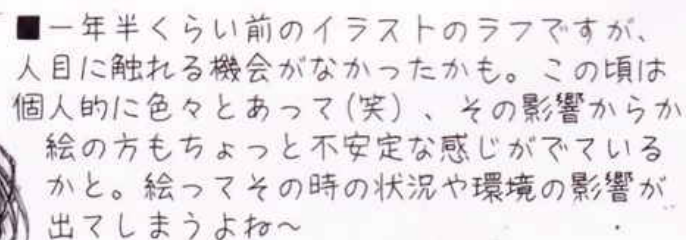 ■一年半くらい前のイラストのラフですが、
人目に触れる機会がなかったかも。この頃は
個人的に色々とあって(笑)、その影響からか
絵の方もちょっと不安定な感じがでている
かと。絵ってその時の状況や環境の影響が
出てしまうよね～